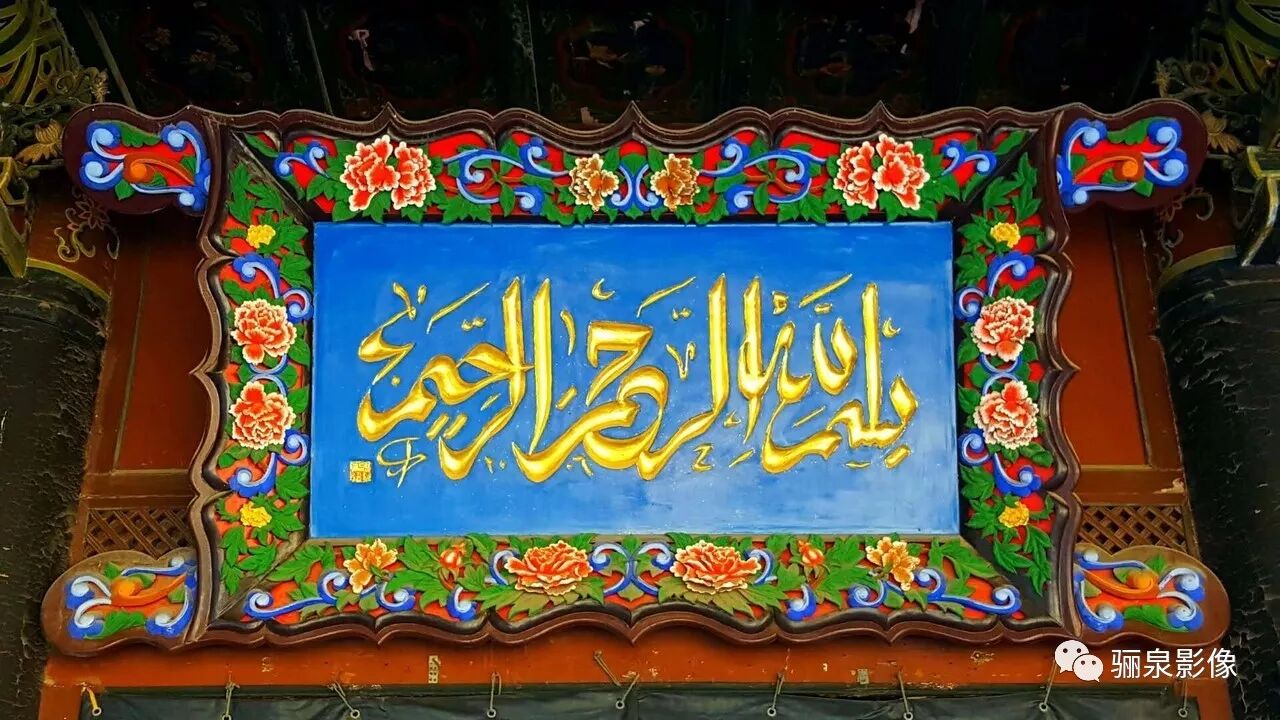 بسم الله الرحمن الرحيم
骊泉影像